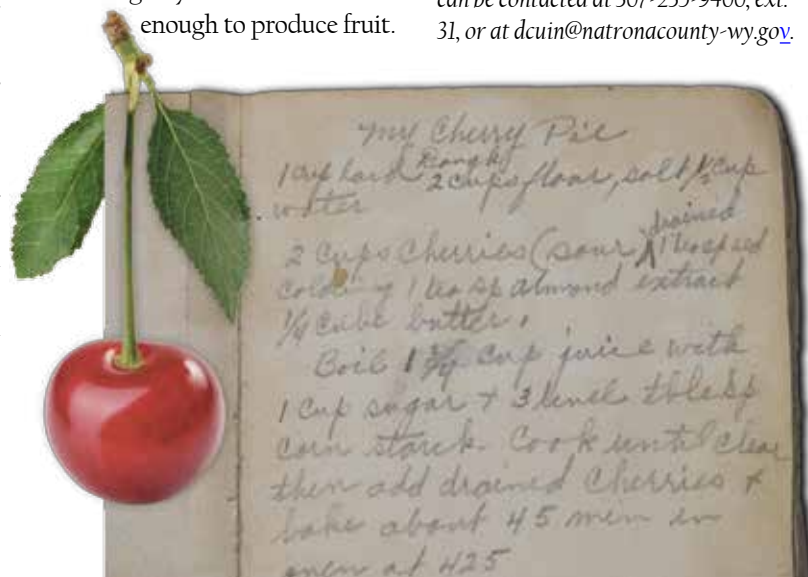 enough to produce fruit.
can be contacted at 307-235-9400, ext.
31, or at dcuin@natronacounty-wy.gov.
My Cherry Pie
1 cup lard 2 cups flour, salt, ½ cup
water
drained
2 cups Cherries (sour 1 teasp red
coloring 1 teasp almond extract
¼ cube butter.
Boil 1 ¾ cup juice with
1 cup sugar + 3 level tblesp
corn starch. Cook until clear
then add drained Cherries &
bake about 45 min in
oven at 425